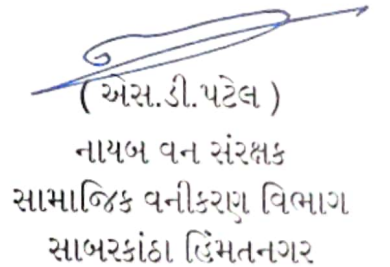 ( એસ.ડી.પટેલ )
નાયબ વન સંરક્ષક
સામાજિક વનીકરણ વિભાગ
સાબરકાંઠા હિંમતનગર